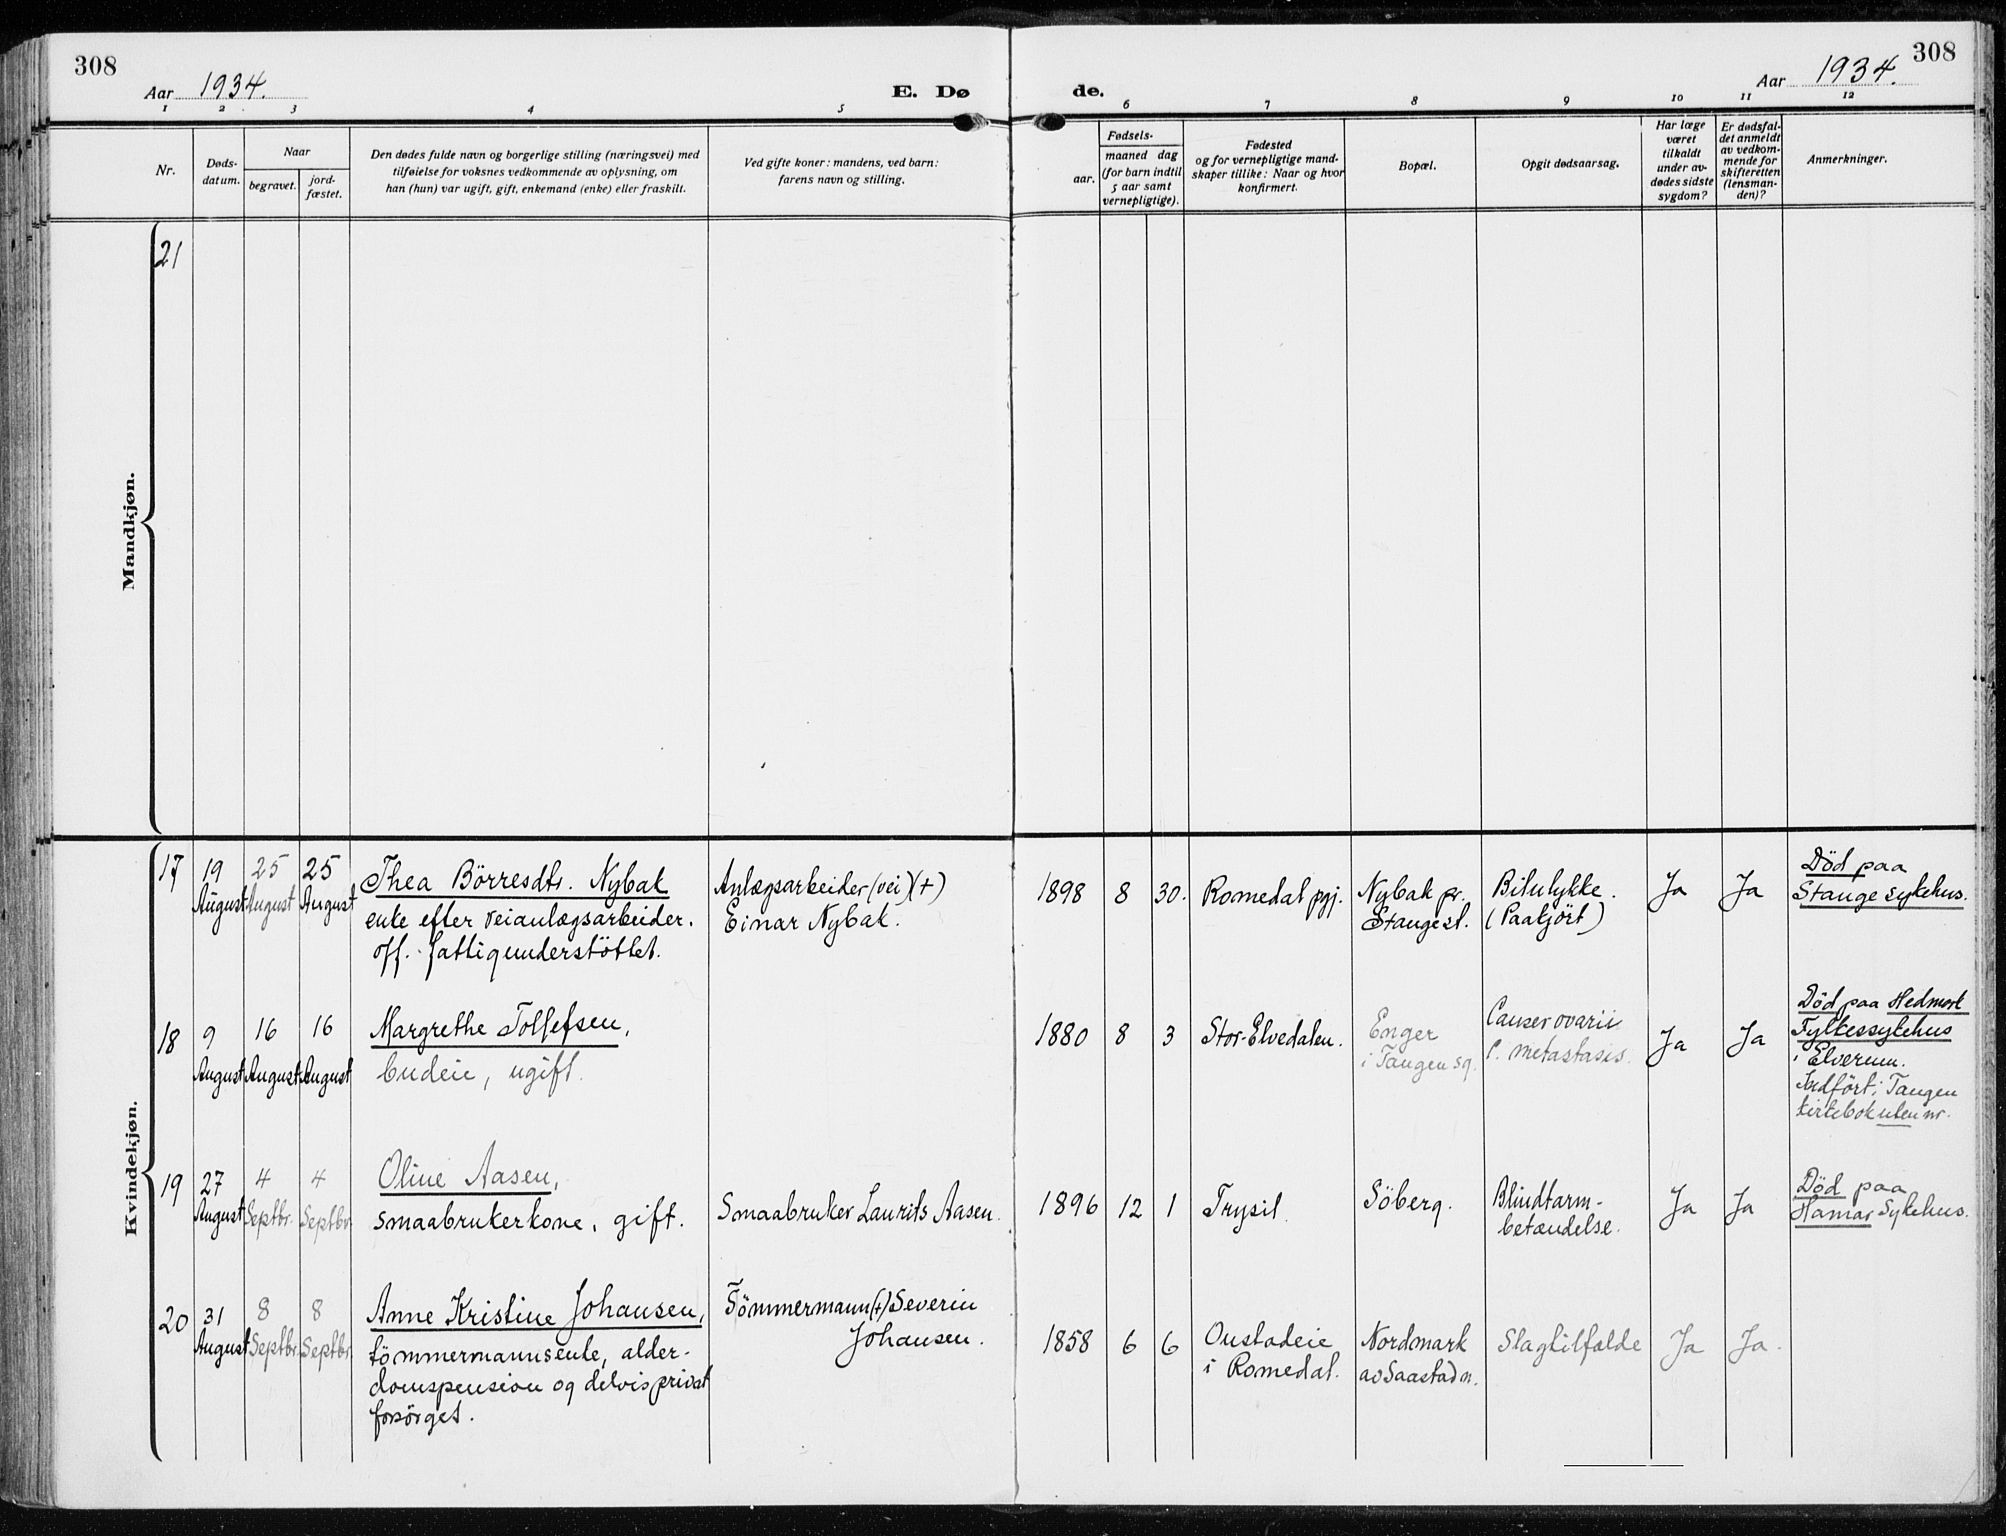 308
Aar 1934.
E. Dø
de.
Aar 1934.
308
1 2 3 4 5 6 7 8 9 10 11 12
Nr.
Døds-
datum.
Naar
begravet.
jord-
fæstet.
Den dødes fulde navn og borgerlige stilling (næringsvei) med
tilføielse for voksnes vedkommende av oplysning, om
han (hun) var ugift, gift, enkemand (enke) eller fraskilt.
Ved gifte koner: mandens, ved barn:
farens navn og stilling.
Fødsels-
aar.
maaned dag
(for barn indtil
5 aar samt
vernepligtige).
Fødested
og for vernepligtige mand-
skaper tillike: Naar og hvor
konfirmert.
Bopæl.
Opgit dødsaarsag.
Har læge
været
tilkaldt
under av-
dødes sidste
sygdom?
Er dødsfal-
det anmeldt
av vedkom-
mende for
skifteretten
(lensman-
den)?
Anmerkninger.
Mandkjøn.
21
Kvindekjøn.
17
19
August
25
August
25
August
Thea Börresdtr. Nybak
enke efter veianlægsarbeider.
off. fattigunderstöttet.
Anlægsarbeider (vei) (+)
Einar Nybak.
1898 8 30.
Romedal pgj.
Nybak pr.
Stange st.
Bilulykke.
(Paakjört)
Ja
Ja
Död paa
Stange sykehus.
18
9
August
16
August
16
August
Margrethe Tollefsen,
budeie, ugift.
1880 8 3
Stor-Elvedalen.
Enger
i Tangen sg.
Cancer ovarii
c. metastasis.
Ja
Ja
Död paa Hedmark
Fylkessykehus
i Elverum.
Indfört i Tangen
kirkebok uten nr.
19
27
August
4
Septbr.
4
Septbr.
Oline Aasen,
smaabrukerkone, gift.
Smaabruker Laurits Aasen.
1896 12 1
Trysil.
Söberg.
Blindtarm-
betændelse.
Ja
Ja
Död paa
Hamar Sykehus.
20
31
August
8
Septbr.
8
Septbr.
Anne Kristine Johansen,
tömmermannsenke, alder-
domspension og delvis privat
forsörget.
Tömmermann (+) Severin
Johansen.
1858 6 6
Onstadeie
i Romedal.
Nordmark
av Saastad n.
Slagtilfælde
Ja
Ja.